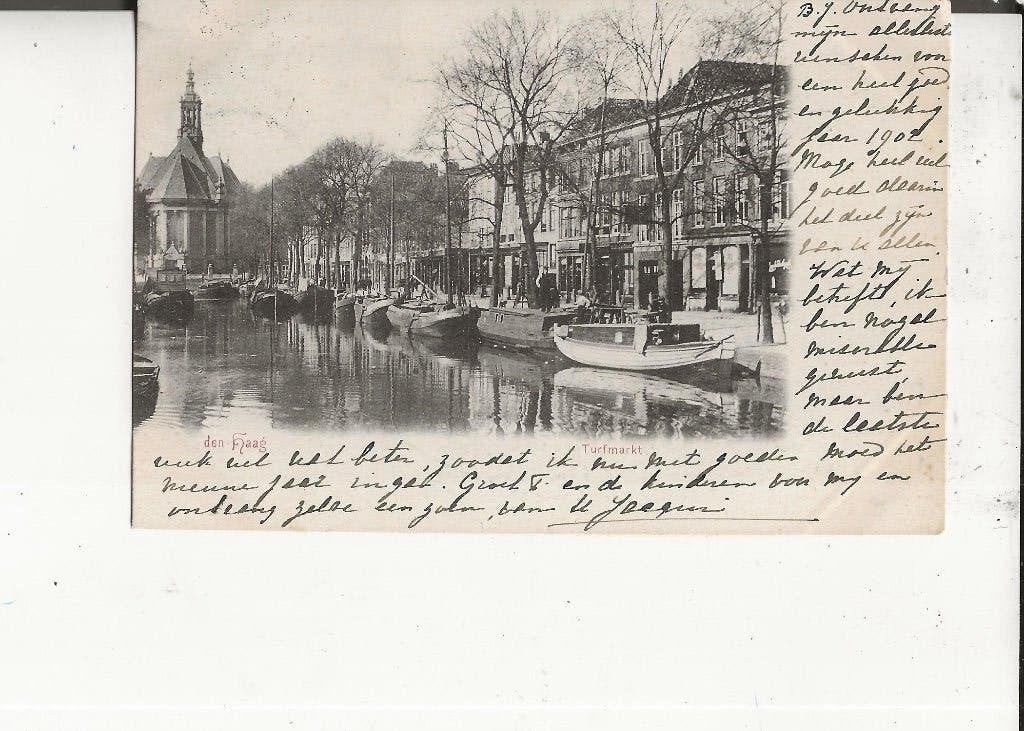 B. J. Ontvang
mijn allerbeste
wenschen voor
een heel goed
en gelukkig
jaar 1902.
Moge heel veel
goed daarin
het deel zijn
van u allen.
Wat mij
betreft, ik
ben nogal
miserabel
geweest
maar ben
de laatste
den Haag
Turfmarkt
week veel wat beter, zoodat ik nu met goeden moed het
nieuwe jaar inga. Groet T en de kinderen voor mij en
ontvang zelve een zoen, van Uw